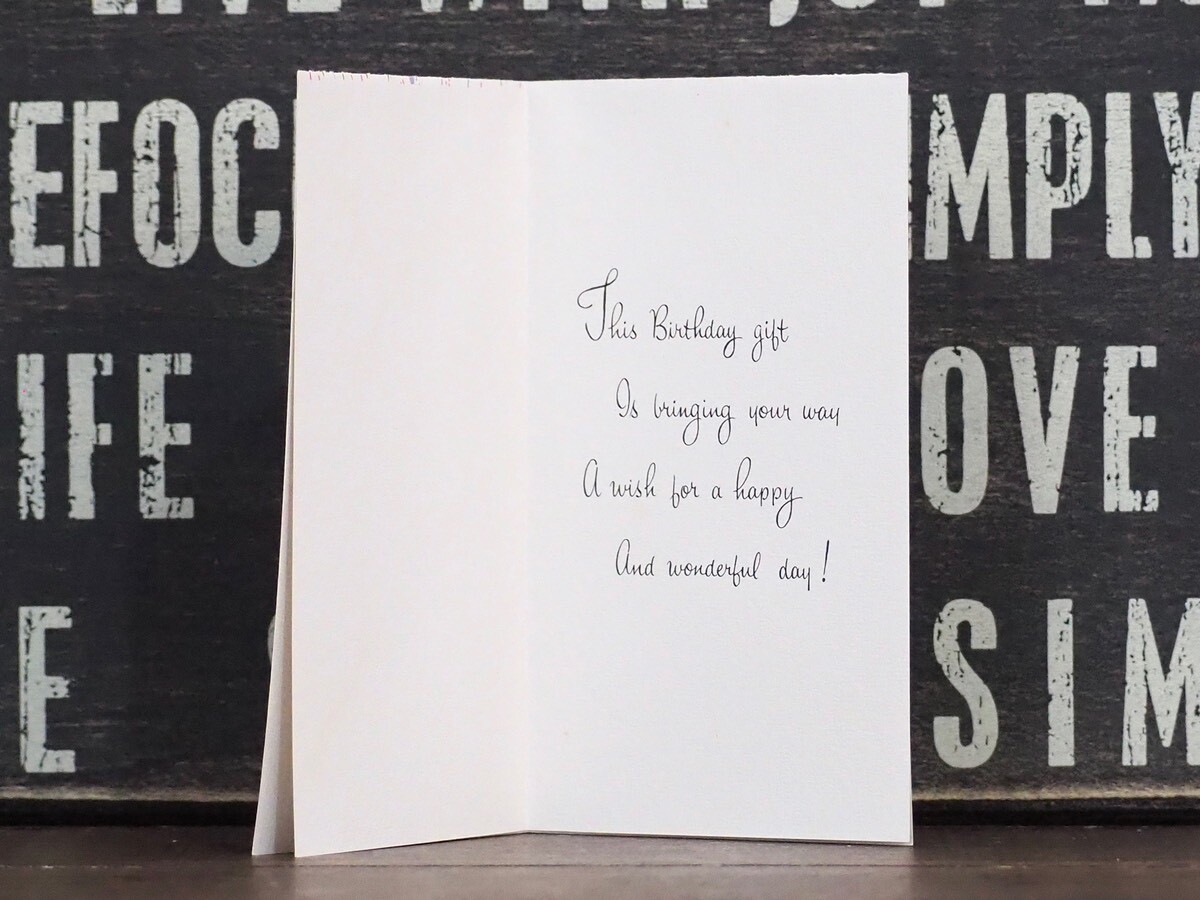 This Birthday gift
Is bringing your way
A wish for a happy
And wonderful day!
EFOC
MPLY
IFE
OVE
E
SIM